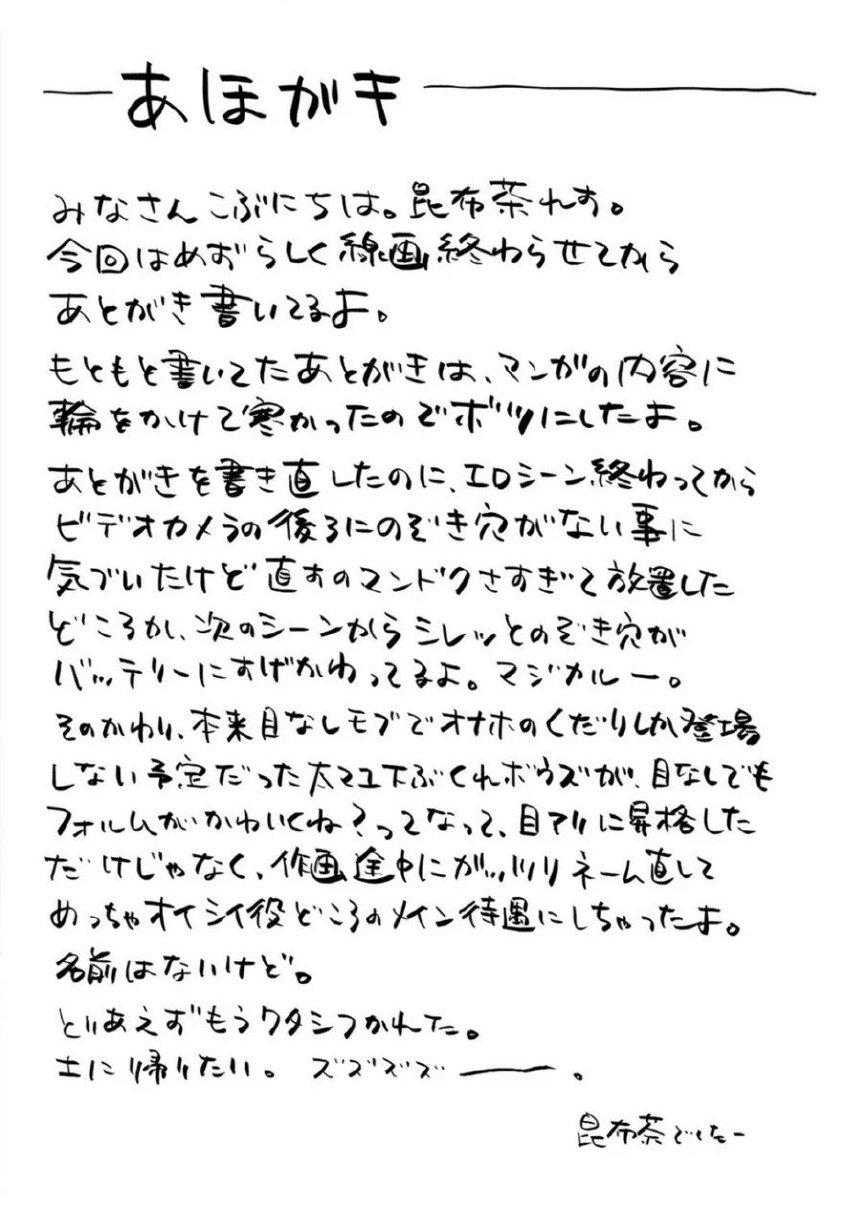 あほがキ
みなさんこぶにちは。昆布茶れす。
今回はめずらしく線画終わらせてから
あとがき書いてるよ。
もともと書いてたあとがきは、マンガの内容に
輪をかけて寒かったのでボツにしたよ。
あとがきを書き直したのに、エロシーン終わってから
ビデオカメラの後ろにのぞき穴がない事に
気づいたけど直すのマンドクさすぎて放置した
どころか、次のシーンからシレッとのぞき穴が
バッテリーにすげかわってるよ。マジカルー。
そのかわり、本来目なしモブでオナホのくだりしか登場
しない予定だった太マユ下ぶくれボウズが、目なしでも
フォルムがかわいくね?ってなって、目アリに昇格した
だけじゃなく、作画途中にガッツリネーム直して
めっちゃオイシイ役どころのメイン待遇にしちゃったよ。
名前はないけど。
とりあえずもうワタシつかれた。
土に帰りたい。ズズズズ――。
昆布茶でしたー